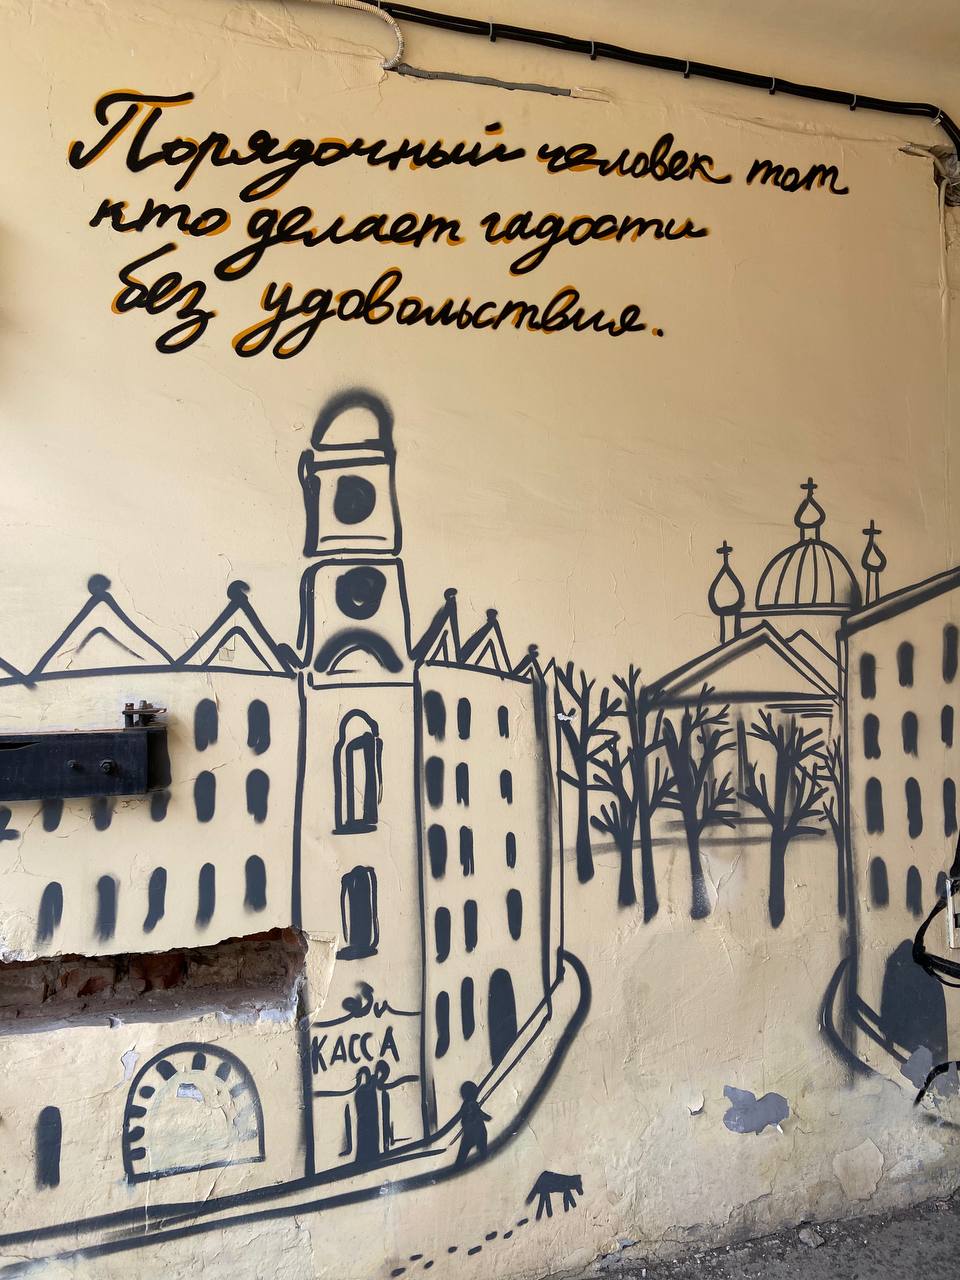 Порядочный человек тот
кто делает гадости
без удовольствия.
КАССА